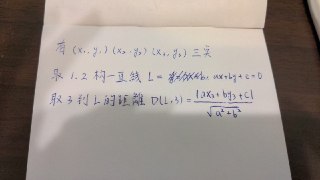 有 (x₁, y₁) (x₂, y₂) (x₃, y₃) 三点
取 1, 2 构一直线 L = ax+by+c=0
取 3 到 L 的距離 D(L,3) = |ax₃+by₃+c| / √(a²+b²)